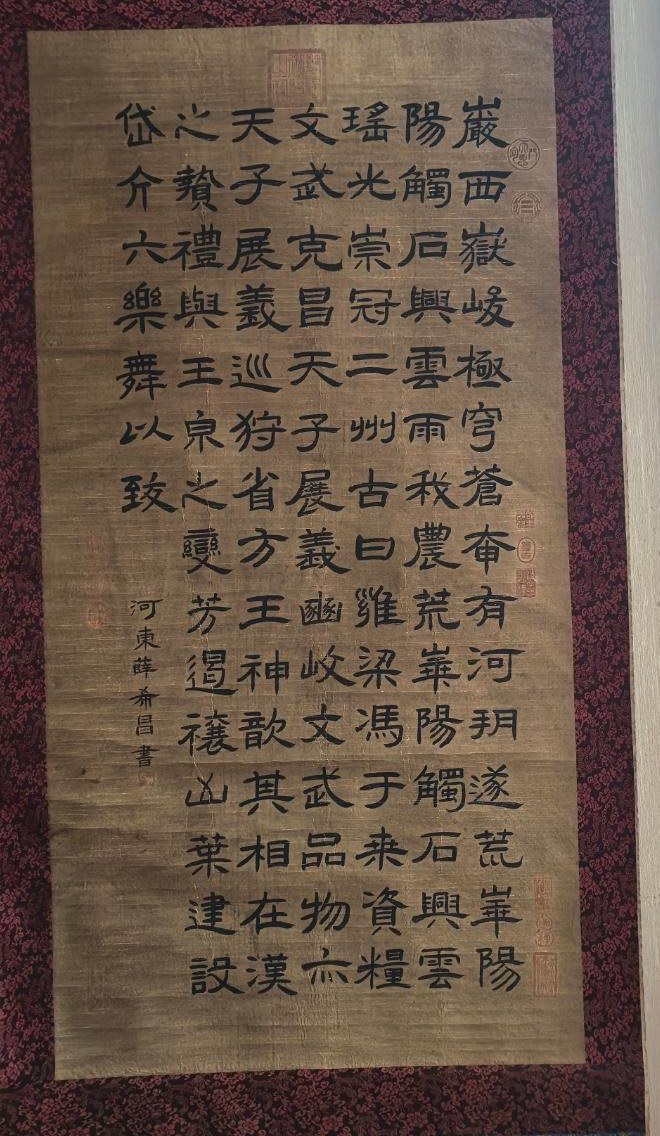 巖西嶽峻極穹蒼奄有河朔遂荒崋陽
陽觸石興雲雨我農荒崋陽觸石興雲
瑤光崇冠二州古曰雝梁馮于来資糧
文武克昌天子展義豳岐文武品物亦
天子展義巡狩省方王神歆其相在漢
之贄禮與王京之變芳遏禳凶葉建設
岱介六樂舞以致
河東薛希昌書